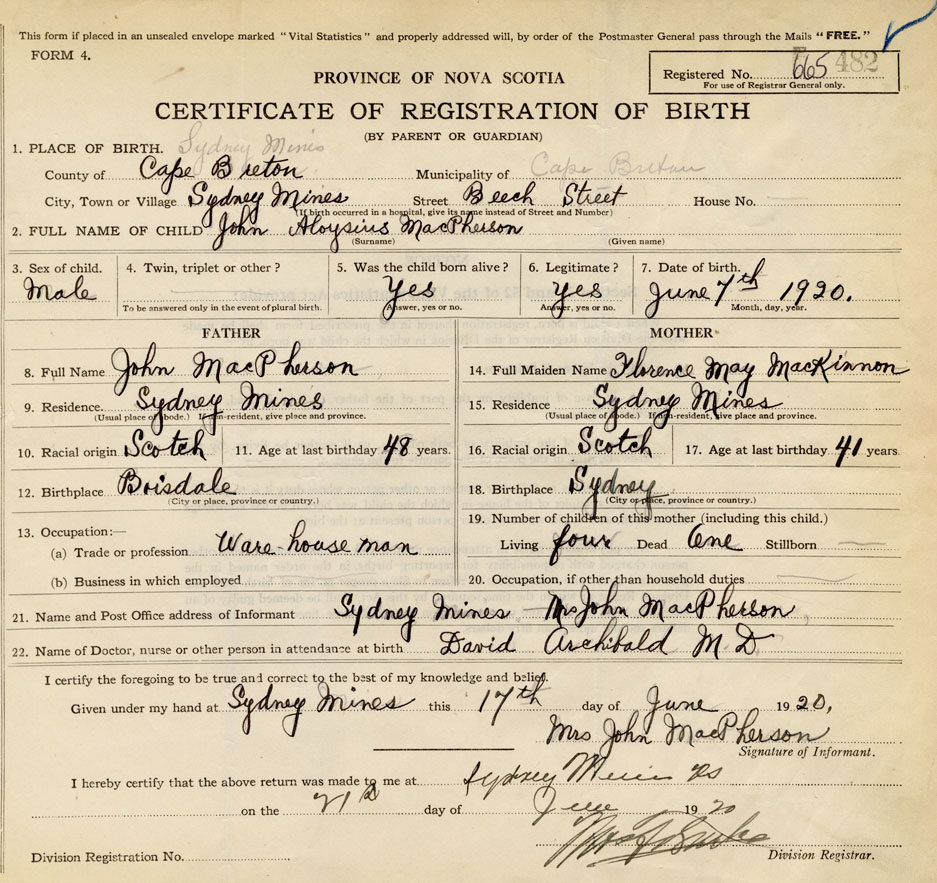 This form if placed in an unsealed envelope marked "Vital Statistics" and properly addressed will, by order of the Postmaster General pass through the Mails "FREE."
FORM 4.
Registered No. 665 482
For use of Registrar General only.
PROVINCE OF NOVA SCOTIA
CERTIFICATE OF REGISTRATION OF BIRTH
(BY PARENT OR GUARDIAN)
1. PLACE OF BIRTH. Sydney Mines
County of Cape Breton Municipality of Cape Breton
City, Town or Village Sydney Mines Street Beech Street House No.
(If birth occurred in a hospital, give its name instead of Street and Number)
2. FULL NAME OF CHILD John Aloysius MacPherson
(Surname) (Given name)
3. Sex of child. 4. Twin, triplet or other? 5. Was the child born alive? 6. Legitimate? 7. Date of birth.
Male Yes Yes June 7th 1920.
To be answered only in the event of plural birth. Answer, yes or no. Answer, yes or no. Month, day, year.
FATHER MOTHER
8. Full Name John MacPherson 14. Full Maiden Name Florence May MacKinnon
9. Residence. Sydney Mines 15. Residence Sydney Mines
(Usual place of abode.) If non-resident, give place and province. (Usual place of abode.) If non-resident, give place and province.
10. Racial origin Scotch 11. Age at last birthday 48 years. 16. Racial origin Scotch 17. Age at last birthday 41 years.
12. Birthplace Boisdale 18. Birthplace Sydney
(City or place, province or country.) (City or place, province or country.)
13. Occupation:— 19. Number of children of this mother (including this child.)
(a) Trade or profession Ware-house man Living four Dead One Stillborn
(b) Business in which employed 20. Occupation, if other than household duties
21. Name and Post Office address of Informant Sydney Mines — Mrs John MacPherson
22. Name of Doctor, nurse or other person in attendance at birth David Archibald M D
I certify the foregoing to be true and correct to the best of my knowledge and belief.
Given under my hand at Sydney Mines this 17th day of June 1920,
Mrs John MacPherson
Signature of Informant.
I hereby certify that the above return was made to me at Sydney Mines
on the day of June 1920
Division Registration No. Division Registrar.